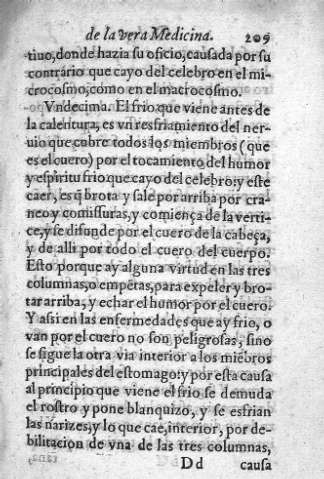 de la vera Medicina. 209
tiuo, donde hazia su oficio, causada por su
contrario que cayo del celebro en el mi-
crocosmo, como en el macrocosmo.
Vndecima. El frio que viene antes de
la calentura, es vn resfriamiento del ner-
uio que cubre todos los miembros (que
es el cuero) por el tocamiento del humor
y espiritu frio que cayo del celebro: y este
caer, es q̃ brota y sale por arriba por cra-
neo y comissuras, y comiença de la verti-
ce, y se difunde por el cuero de la cabeça,
y de alli por todo el cuero del cuerpo.
Esto porque ay alguna virtud en las tres
columnas, o empetas, para expeler y bro-
tar arriba, y echar el humor por el cuero.
Y assi en las enfermedades que ay frio, o
van por el cuero no son peligrosas, sino
se sigue la otra via interior a los miẽbros
principales del estomago: y por esta causa
al principio que viene el frio se demuda
el rostro y pone blanquizo, y se esfrian
las narizes, y lo que cae, interior, por de-
bilitacion de vna de las tres columnas,
Dd causa